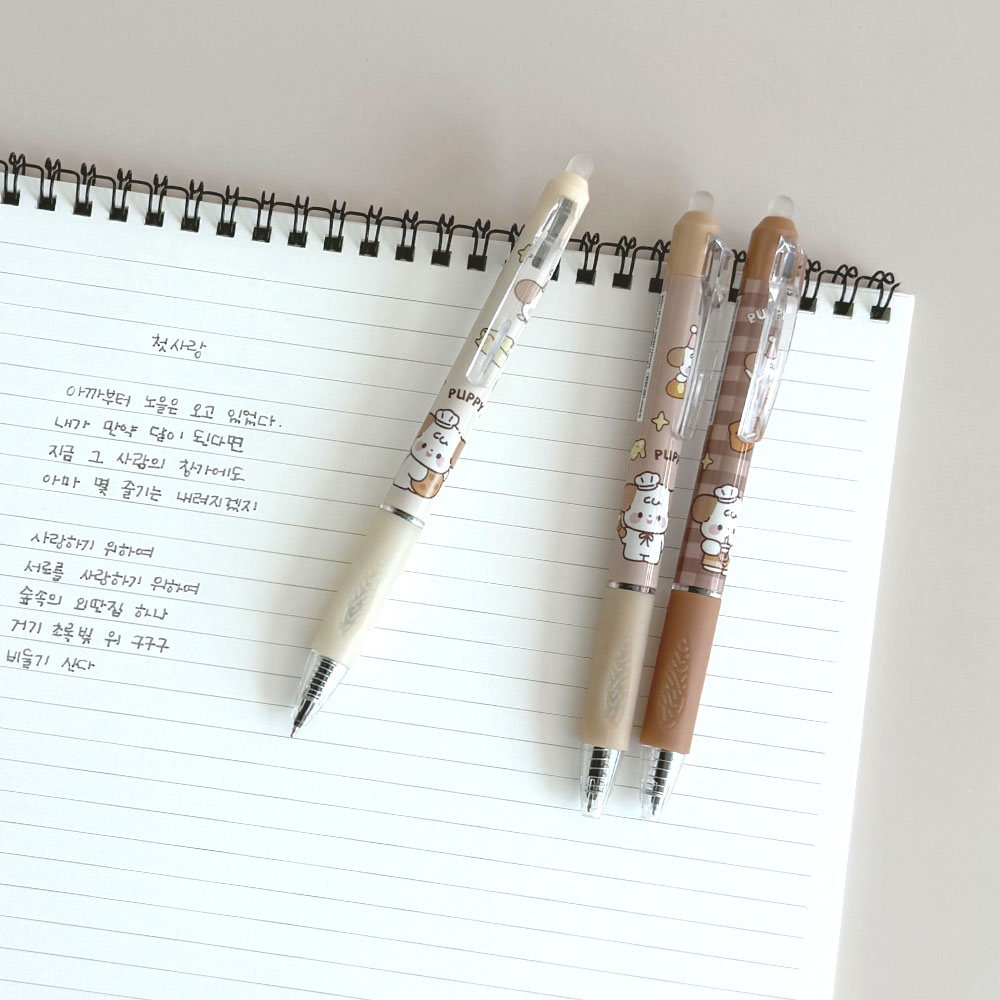 첫사랑
아까부터 노을은 오고 있었다.
내가 만약 달이 된다면
지금 그 사람의 창가에도
아마 몇 줄기는 내려지겠지
사랑하기 위하여
서로를 사랑하기 위하여
숲속의 외딴집 하나
거기 초록빛 위 구구구
비둘기 산다
PUPPY
PUPP
PUPP